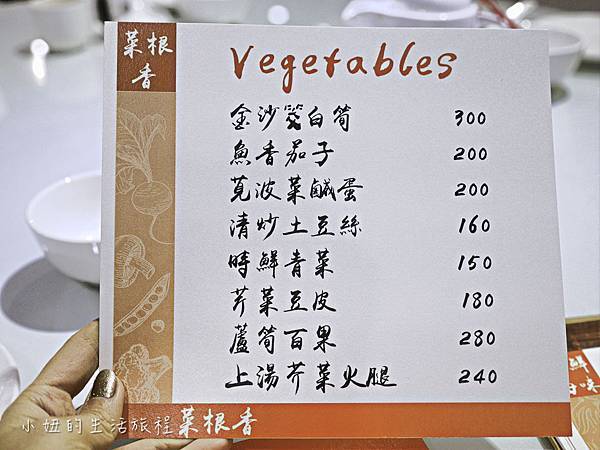 菜根
香
Vegetables
金沙筊白筍 300
魚香茄子 200
莧菠菜鹹蛋 200
清炒土豆絲 160
時鮮青菜 150
芹菜豆皮 180
蘆筍百果 280
上湯芥菜火腿 240
小妞的生活旅程
菜根香
鮮
味